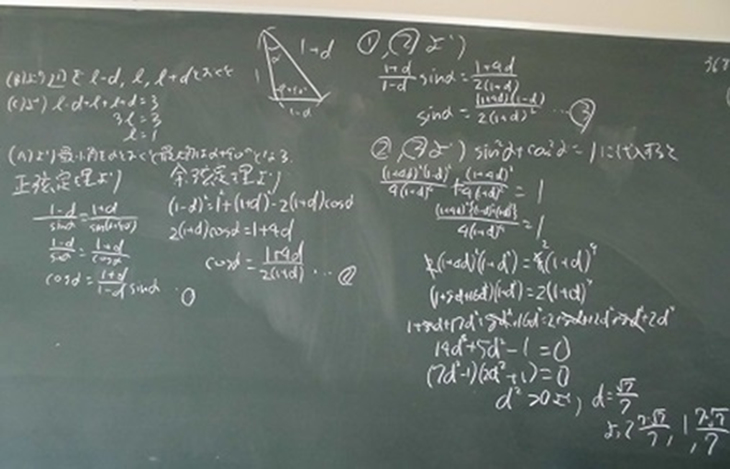 (B)より辺をl-d, l, l+dとおくと
(C)より l-d+l+l+d=3
3l=3
l=1
(A)より最小角をαとおくと最大角はα+90°となる.
正弦定理より
(1-d)/sinα=(1+d)/sin(α+90)
(1-d)/sinα=(1+d)/cosα
cosα=(1+d)/(1-d) sinα ①
余弦定理より
(1-d)²=1²+(1+d)²-2(1+d)cosα
2(1+d)cosα=1+4d
cosα=(1+4d)/2(1+d) … ②
α
1+d
1
1-d
①,②より
(1+d)/(1-d) sinα=(1+4d)/2(1+d)
sinα=(1+4d)(1-d)/2(1+d)² … ③
②,③より sin²α+cos²α=1に代入すると
(1+4d)²(1-d)²/4(1+d)⁴+(1+4d)²/4(1+d)²=1
=1
2(1+4d)²(1+d²)=4(1+d)⁴
(1+8d+16d²)(1+d²)=2(1+d)⁴
14d⁴+5d²-1=0
(7d²-1)(2d²+1)=0
d²>0より, d=√7/7
よって (7-√7)/7, 1, (7+√7)/7